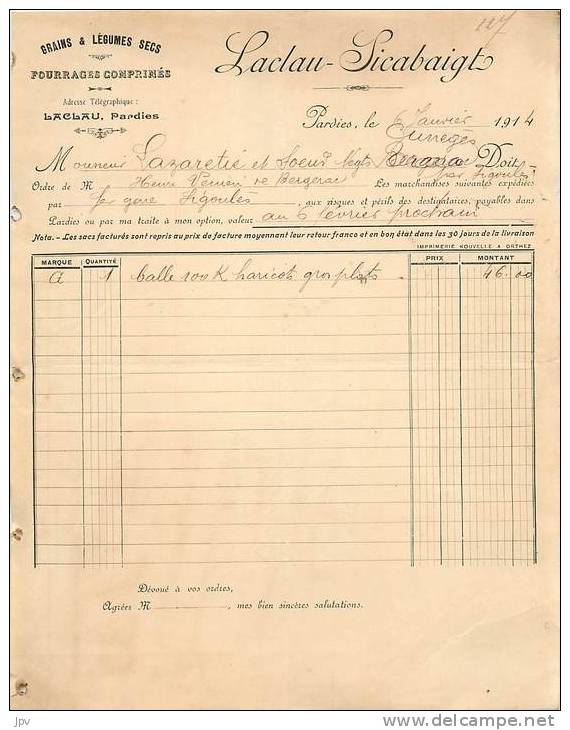 127
GRAINS & LÉGUMES SECS
FOURRAGES COMPRIMÉS
Adresse Télégraphique :
LACLAU, Pardies
Laclau-Sicabaigt
Pardies, le 6 Janvier 1914
Cunèges
Monsieur Lazaretie et Soeur Negts Bergerac Doit
par Sigoulès
Ordre de M Henri de Bergerac Les marchandises suivantes expédiées
par gare Sigoulès, aux risques et périls des destinataires, payables dans
Pardies ou par ma traite à mon option, valeur au 6 février prochain
Nota. - Les sacs facturés sont repris au prix de facture moyennant leur retour franco et en bon état dans les 30 jours de la livraison
IMPRIMERIE NOUVELLE A ORTHEZ
MARQUE QUANTITÉ PRIX MONTANT
a 1 balle 100 K haricots gros plats 46.00
Dévoué à vos ordres,
Agréez M, mes bien sincères salutations.
jpv
www.delcampe.net